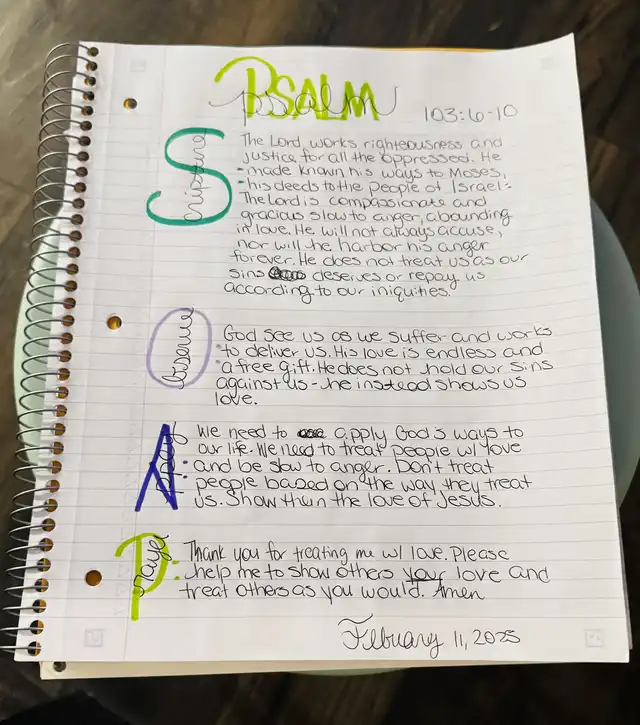 PSALM
psalm 103:6-10
Scripture
The Lord works righteousness and
justice for all the oppressed. He
made known his ways to Moses,
his deeds to the people of Israel:
The Lord is compassionate and
gracious slow to anger, abounding
in love. He will not always accuse,
nor will the harbor his anger
forever. He does not treat us as our
sins deserves or repay us
according to our iniquities.
Observe
God see us as we suffer and works
to deliver us. His love is endless and
a free gift. He does not hold our sins
against us - he instead shows us
love.
We need to apply God's ways to
our life. We need to treat people w/ love
and be slow to anger. Don't treat
people based on the way they treat
us. Show them the love of Jesus.
Prayer
Thank you for treating me w/ love. Please
help me to show others your love and
treat others as you would. Amen
February 11, 2025